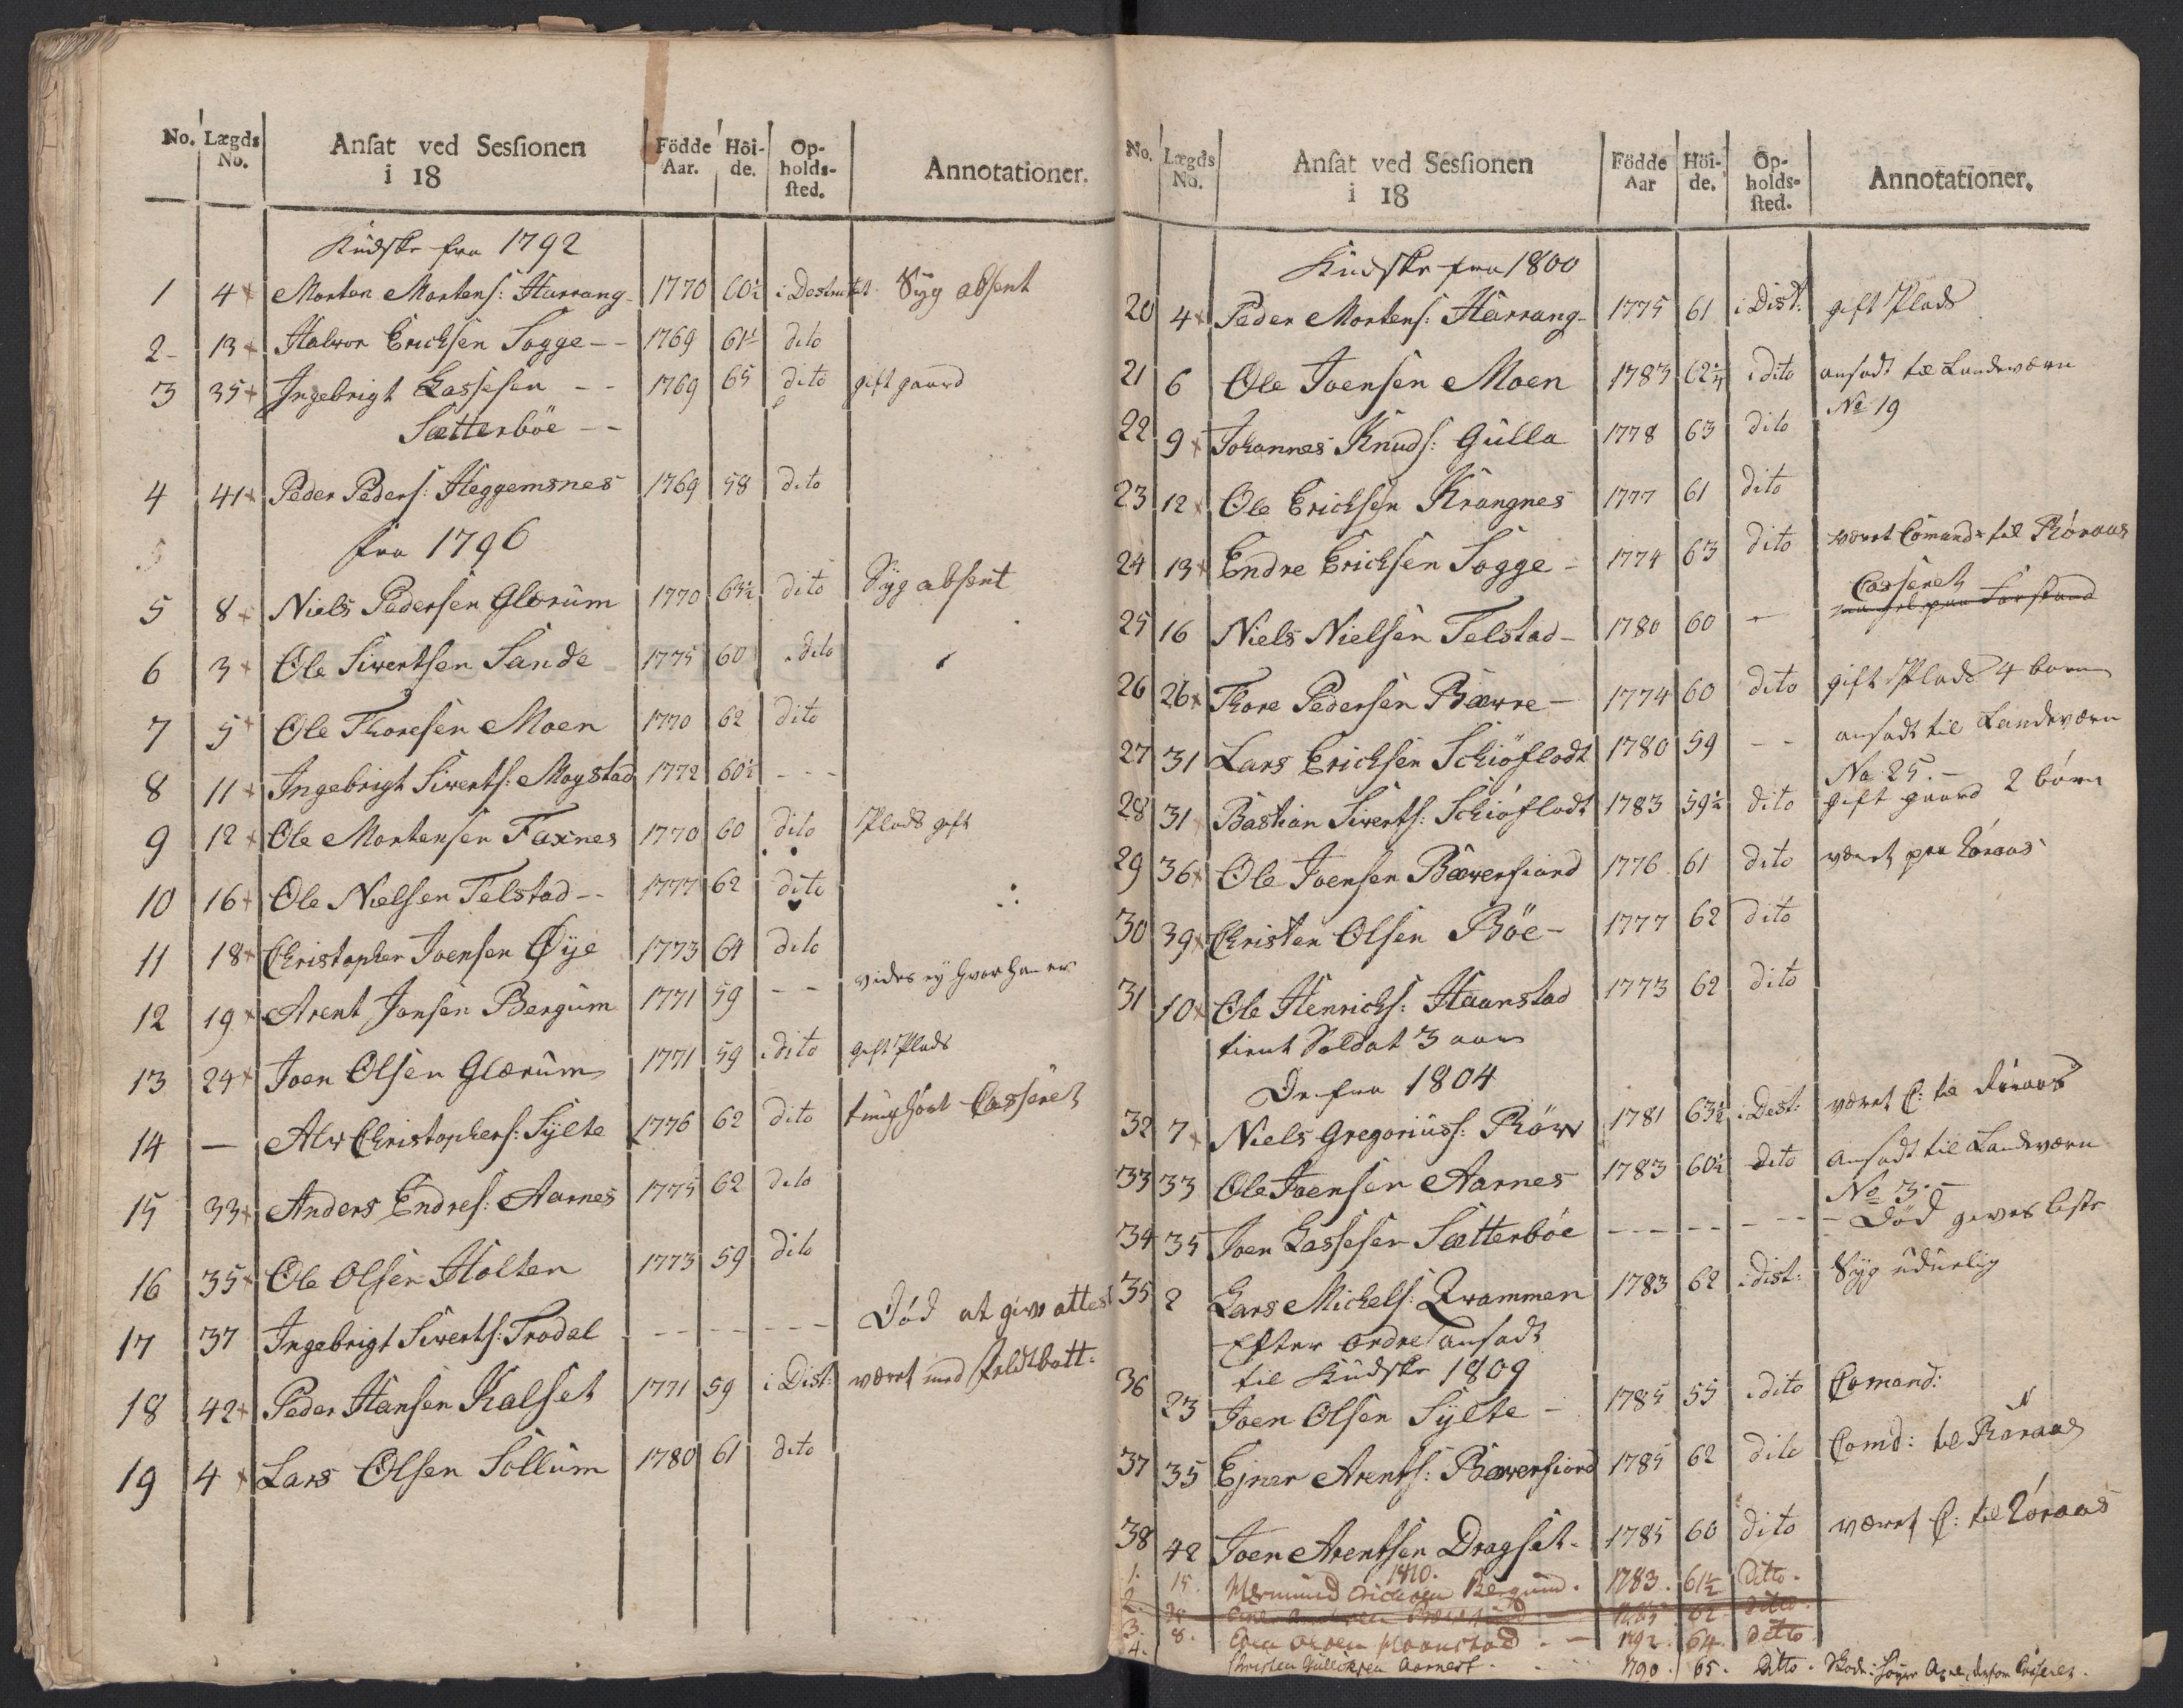 No. Lægds No. Ansat ved Sessionen i 18 Födde Aar. Höide. Opholdssted. Annotationer.
Kudske fra 1792
1 4 Morten Mortens: Harrang 1770 60½ i Destricktet Syg absent
2 13 Halvor Erichsen Sogge 1769 61½ dito
3 35 Ingebrigt Lassesen 1769 65 dito gift gaard
Sætterböe
4 41 Peder Peders: Heggemsnes 1769 58 dito
fra 1796
5 8 Niels Pedersen Glærum 1770 63½ dito Syg absent
6 3 Ole Sivertsen Sande 1775 60 dito
7 5 Ole Thoresen Moen 1770 62 dito
8 11 Ingebrigt Siverts: Mogstad 1772 60½ - - -
9 12 Ole Mortensen Faxnes 1770 60 dito Plads gift
10 16 Ole Nielsen Telstad 1777 62 dito
11 18 Christopher Joensen Øye 1773 61 dito
12 19 Arent Jonsen Bergum 1771 59 - - vides ey hvor han er
13 24 Joen Olsen Glærum 1771 59 i dito gift Plads
14 — Alv Christophers: Sylte 1776 62 dito tunghört Casseret
15 33 Anders Endres: Aarnes 1775 62 dito
16 35 Ole Olsen Holten 1773 59 dito
17 37 Ingebrigt Siverts: Trodal - - - Död at give attest
18 42 Peder Hansen Kalset 1771 59 i Dist: været med feldtbatt:
19 4 Lars Olsen Sollum 1780 61 dito
No. Lægds No. Ansat ved Sessionen i 18 Födde Aar Höide. Opholdssted. Annotationer.
Kudske fra 1800
20 4 Peder Mortens: Harrang 1775 61 i Dist: gift Plads
21 6 Ole Joensen Moen 1783 62¼ i dito ansadt til Landeværn
No 19
22 9 Johannes Knuds: Gulla 1778 63 dito
23 12 Ole Erichsen Krangnes 1777 61 dito
24 13 Endre Erichsen Sogge 1774 63 dito været Comand: til Röraas
Casseret
25 16 Niels Nielsen Telstad 1780 60 - mangel paa Forstand
26 26 Thore Pedersen Bæwre 1774 60 dito gift Plads 4 born
27 31 Lars Erichsen Schiöflodt 1780 59 - - ansadt til Landeværn
No 25.
28 31 Bastian Siverts: Schiöflodt 1783 59½ dito gift gaard 2 börn
29 36 Ole Joensen Bæwerfiord 1776 61 dito været paa Röraas
30 39 Christen Olsen Böe 1777 62 dito
31 10 Ole Henrichs: Haanstad 1773 62 dito
tient Soldat 3 aar
De fra 1804
32 7 Niels Gregoriuss: Röw 1781 63½ i Dest: været C: til Röraas
33 33 Ole Joensen Aarnes 1783 60½ dito ansadt til Landeværn
No 3.
34 35 Joen Lassesen Sætterböe - - - Död geves
35 2 Lars Michels: Qvammen 1783 62 i dist: Syg uduelig
Efter ordre ansadt
til Kudske 1809
36 23 Joen Olsen Sylte 1785 55 i dito Comand:
37 35 Ejner Arents: Bæwerfiord 1785 62 dito Comd: til Röraas
38 42 Joen Arentsen Dragset 1785 60 dito været C: til Röraas
1810.
1. 15. Bergum. 1783. 61½ Ditto.
2. 62 ditto.
3. 8. Olsen Haanstad 1792. 64. ditto
4. Christen Gulliksen Aarnest 1790. 65. ditto.